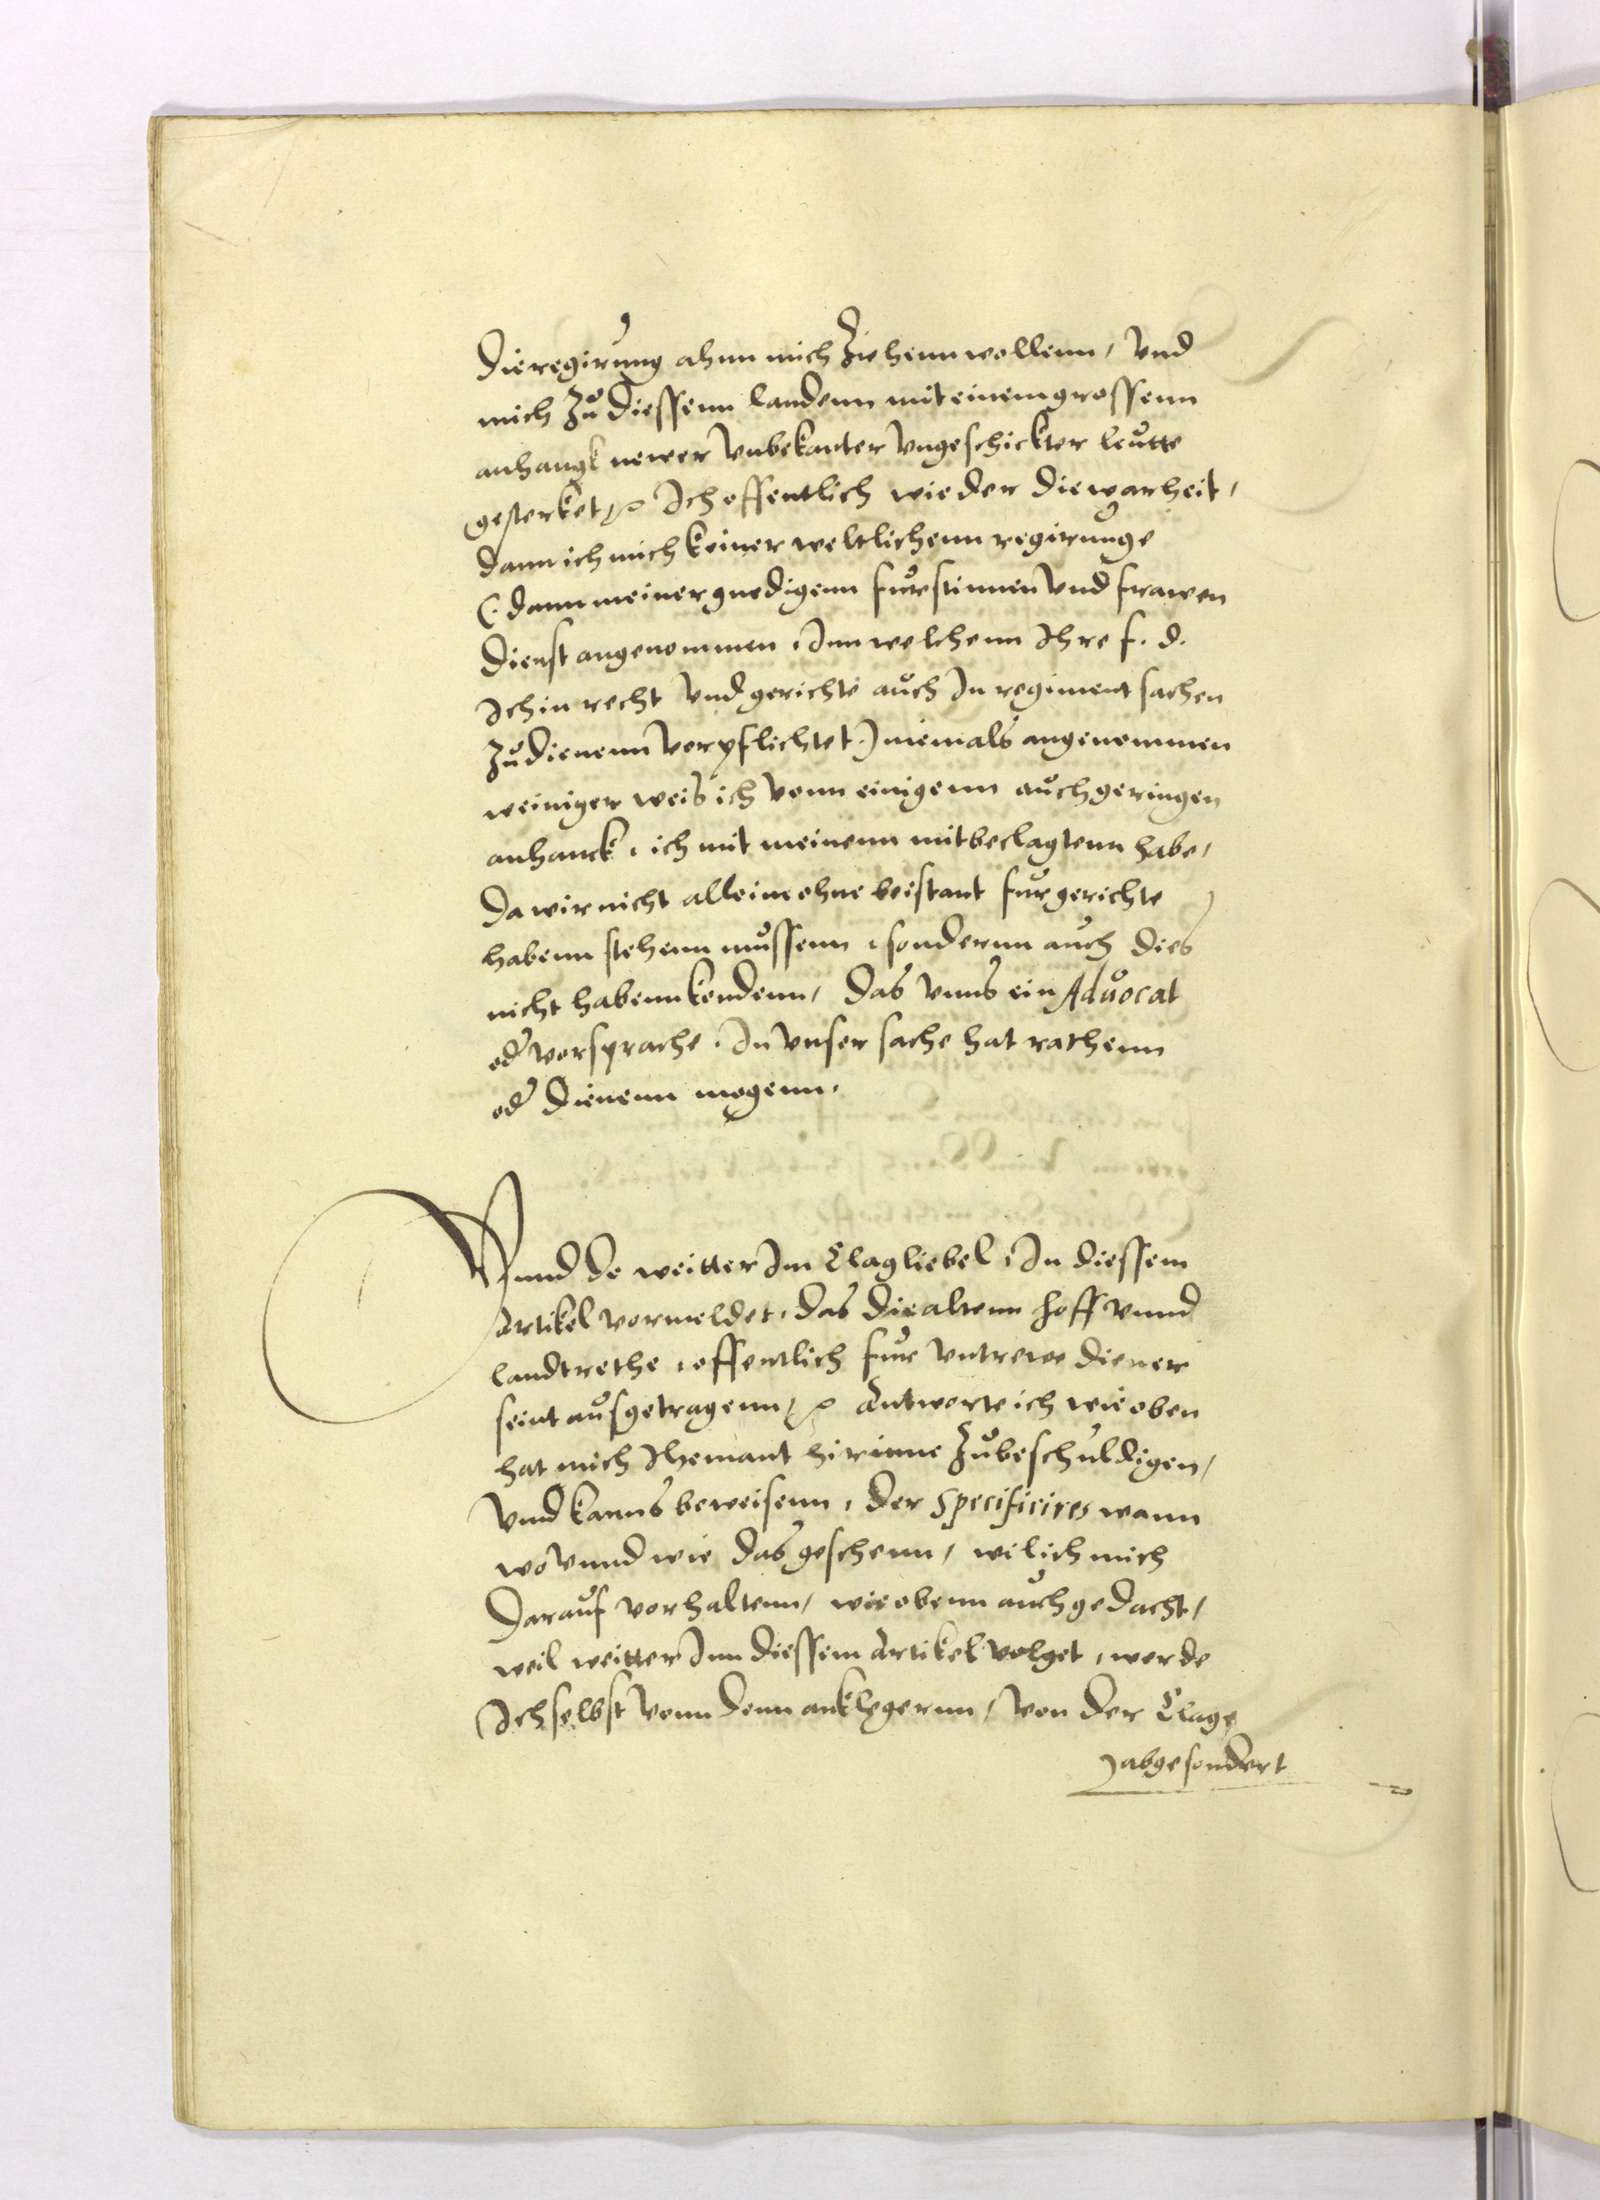 die regirung ahnn mich Ziehenn wollenn, Vnd
mich Zu diessenn landenn mit einem grossenn
anhangk newer Vnbekanter Vngeschickter leutte
gesterket, Ist offentlich wieder die warheit,
dann ich mich keiner weltlichenn regirunge
(: dann meiner gnedigenn furstinnen Vnd frawen
dienst angenommen, Inn welchenn Ihre f. d.
Ich in recht Vnd gerichte auch In regiment sachen
Zu dienenn Verpflichtet :) niemals angenommen
weiniger weis ich Vonn einigenn auch geringen
anhanck, ich mit meinenn mitbeclagtenn habe,
Da wir nicht allein ohne beistant fur gerichte
habenn stehenn mussenn, sondernn auch dies
nicht habenn kendenn, das Vnns ein Aduocat
oder Vorsprache, In Vnser sache hat rathenn
oder dienenn mogenn.
Vnnd de weitter Im Clagliebel, In diessem
Artikel vormeldet, das die altenn hoff vnnd
landtrethe, offentlich fur Vntrewe diener
seint ausgetragenn, Antworte ich wie oben
hat mich Ihemant hirinne Zu beschuldigen,
Vnd kanns beweisenn, der specificires wann
wo Vnnd wie das geschenn, wil ich mich
Darauf vorhaltenn, wie obenn auch gedacht,
weil weitter Inn diessem Artikel volget, werde
Ich selbst Vonn denn anklegernn, Von der Clage
abgesondert